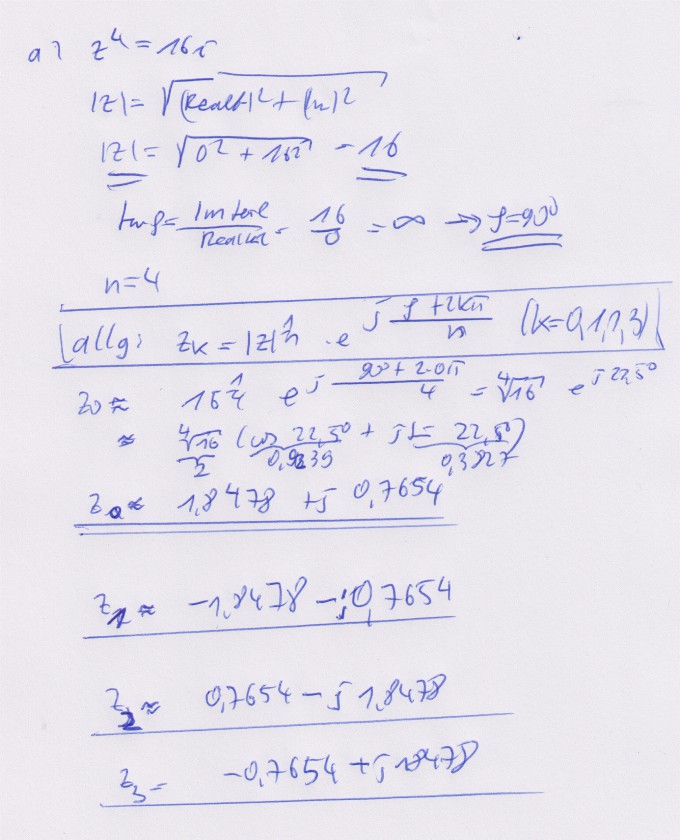 a) z⁴ = 16i
|z| = √(Realt)² + (Im)²
|z| = √0² + 16² = 16
tan φ = Imteil / Realteil = 16/0 = ∞ → φ = 90°
n = 4
allg: z_k = |z|^(1/n) · e^(j (φ + 2kπ)/n) (k = 0,1,1,3)
z₀ ≈ 16^(1/4) e^(j (90° + 2·0π)/4) = ⁴√16 e^(j 22,5°)
≈ ⁴√16 (cos 22,5° + j 22,5°)
2 0,9239 0,3827
z₀ ≈ 1,8478 + j 0,7654
z₁ ≈ -1,8478 - j0,7654
z₂ ≈ 0,7654 - j 1,8478
z₃ = -0,7654 + j 1,8478